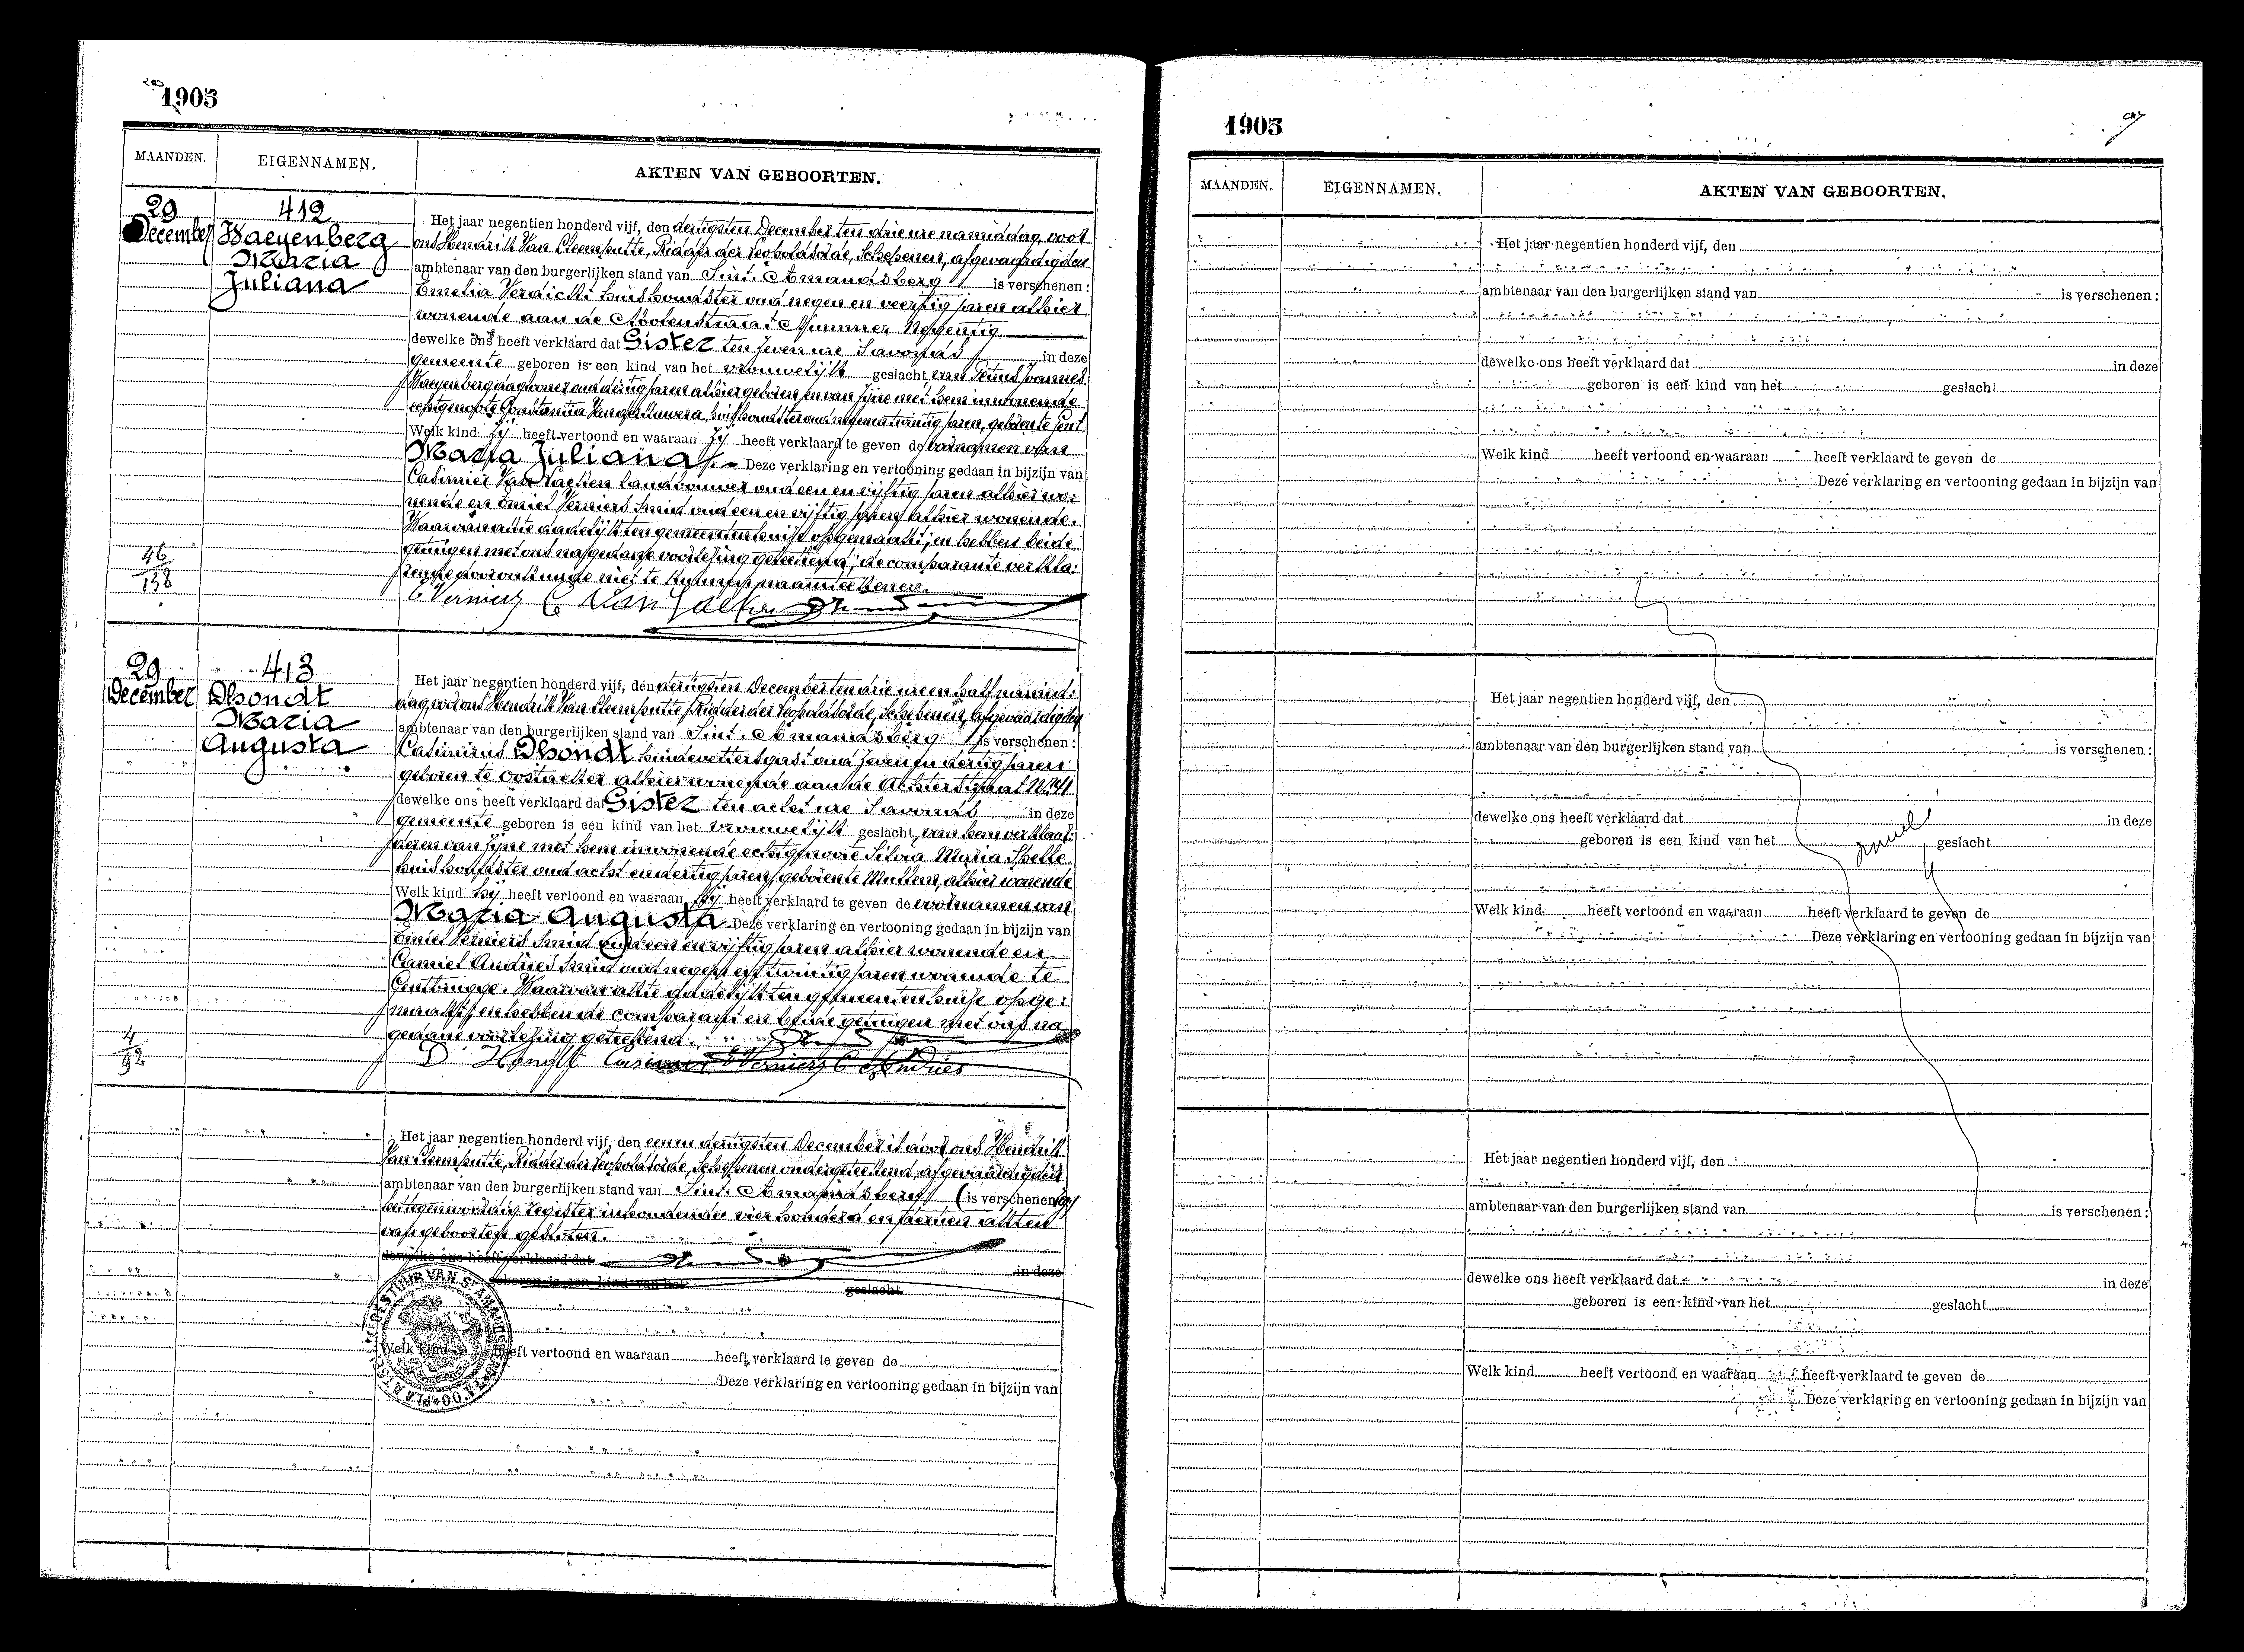 1905
MAANDEN.
EIGENNAMEN.
AKTEN VAN GEBOORTEN.
29
December
412
Waeyenberg
Maria
Juliana
Het jaar negentien honderd vijf, den dertigsten December ten drie ure namiddag, voor
ons Hendrik Van Cleemputte, Ridder der Leopoldsorde, Schepenen, afgevaardigden
ambtenaar van den burgerlijken stand van Sint-Amandsberg is verschenen:
Emelia Verdickt huishoudster oud negen en veertig jaren alhier
wonende aan de Molenstraat Nummer Negentig
dewelke ons heeft verklaard dat Gister ten zeven ure s'avonds in deze
gemeente geboren is een kind van het vrouwelijk geslacht van Petrus Joannes
Waeyenberg daglooner oud dertig jaren alhier geboren, en van zijne met hem inwonende
echtgenoote Constantia huishoudster oud negen en twintig jaren, geboren te Gent
Welk kind zij heeft vertoond en waaraan zij heeft verklaard te geven de voornamen van
Maria Juliana. Deze verklaring en vertooning gedaan in bijzijn van
Casimier Van landbouwer oud een en vijftig jaren alhier wo:
nende en Emiel Verniers Smid oud een en vijftig jaren alhier wonende.
Waarvan akte dadelijk ten gemeentenhuize opgemaakt; en hebben beide
getuigen met ons na gedane voorlezing geteekend; de comparante verkla:
rende door onkunde niet te kunnen naamteekenen.
46
138
E Verniers C Van
29
December
413
Dhondt
Maria
Augusta
Het jaar negentien honderd vijf, den dertigsten December ten drie ure en half namid:
dag, voor ons Hendrik Van Cleemputte, Ridder der Leopoldsorde, Schepenen, afgevaardigden
ambtenaar van den burgerlijken stand van Sint-Amandsberg is verschenen:
Casimirus Dhondt huidevettersgast oud zeven en dertig jaren
geboren te Oostacker alhier wonende aan de Achterstraat Nr 41
dewelke ons heeft verklaard dat Gister ten acht ure s'avonds in deze
gemeente geboren is een kind van het vrouwelijk geslacht, van hem verklaar:
der en van zijne met hem inwonende echtgenoote Silvia Maria
huishoudster oud acht en dertig jaren, geboren te Mullem, alhier wonende
Welk kind hij heeft vertoond en waaraan hij heeft verklaard te geven de voornamen van
Maria Augusta Deze verklaring en vertooning gedaan in bijzijn van
Emiel Verniers Smid oud een en vijftig jaren alhier wonende en
Camiel Andries Smid oud negen en twintig jaren wonende te
Gentbrugge. Waarvan akte dadelijk ten gemeentenhuize opge:
maakt; en hebben de comparant en beide getuigen met ons na
gedane voorlezing geteekend.
4
92
D'Hondt Casimir E Verniers C Andries
Het jaar negentien honderd vijf, den een en dertigsten December is door ons Hendrik
Van Cleemputte, Ridder der Leopoldsorde, Schepenen ondergeteekend, afgevaardigden
ambtenaar van den burgerlijken stand van Sint-Amandsberg (is verschenen:)
het tegenwoordig register inhoudende vier honderd en dertien akten
van geboorten gesloten.
dewelke ons heeft verklaard dat in deze
geboren is een kind van het geslacht
Welk kind heeft vertoond en waaraan heeft verklaard te geven de
Deze verklaring en vertooning gedaan in bijzijn van
1905
MAANDEN.
EIGENNAMEN.
AKTEN VAN GEBOORTEN.
Het jaar negentien honderd vijf, den
ambtenaar van den burgerlijken stand van is verschenen:
dewelke ons heeft verklaard dat in deze
geboren is een kind van het geslacht
Welk kind heeft vertoond en waaraan heeft verklaard te geven de
Deze verklaring en vertooning gedaan in bijzijn van
Het jaar negentien honderd vijf, den
ambtenaar van den burgerlijken stand van is verschenen:
dewelke ons heeft verklaard dat in deze
geboren is een kind van het geslacht
Welk kind heeft vertoond en waaraan heeft verklaard te geven de
Deze verklaring en vertooning gedaan in bijzijn van
Het jaar negentien honderd vijf, den
ambtenaar van den burgerlijken stand van is verschenen:
dewelke ons heeft verklaard dat in deze
geboren is een kind van het geslacht
Welk kind heeft vertoond en waaraan heeft verklaard te geven de
Deze verklaring en vertooning gedaan in bijzijn van